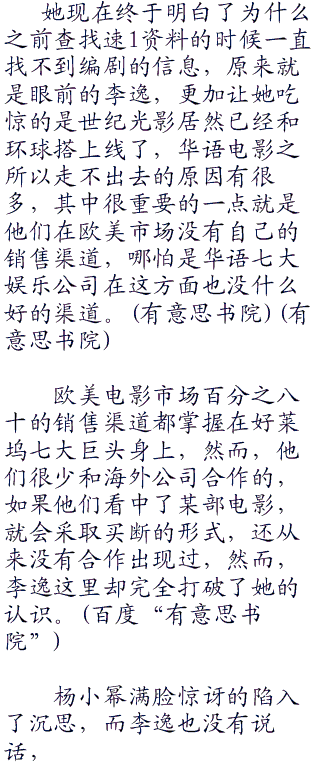 她现在终于明白了为什么
之前查找速1资料的时候一直
找不到编剧的信息，原来就
是眼前的李逸，更加让她吃
惊的是世纪光影居然已经和
环球搭上线了，华语电影之
所以走不出去的原因有很
多，其中很重要的一点就是
他们在欧美市场没有自己的
销售渠道，哪怕是华语七大
娱乐公司在这方面也没什么
好的渠道。(有意思书院)(有
意思书院)
欧美电影市场百分之八
十的销售渠道都掌握在好莱
坞七大巨头身上，然而，他
们很少和海外公司合作的，
如果他们看中了某部电影，
就会采取买断的形式，还从
来没有合作出现过，然而，
李逸这里却完全打破了她的
认识。(百度“有意思书
院”)
杨小幂满脸惊讶的陷入
了沉思，而李逸也没有说
话，